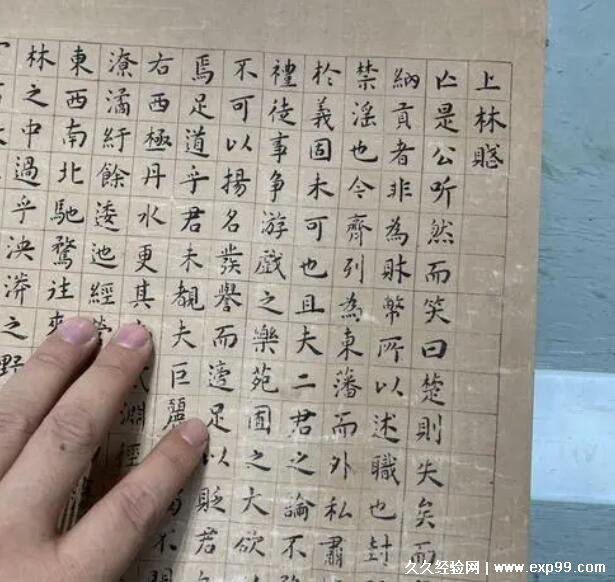 上林賦
亡是公听然而笑曰楚則失矣而
納貢者非為財幣所以述職也封
禁淫也今齊列為東藩而外私肅
於義固未可也且夫二君之論不
禮徒事争游戲之樂苑囿之大欲
不可以揚名發譽而適足以貶君
焉足道乎君未覩夫巨麗不
右西極丹水更其淵徑
潦潏紆餘逶迤經營
東西南北馳騖往來
林之中過乎泱漭之野
久久经验网 www.exp99.com